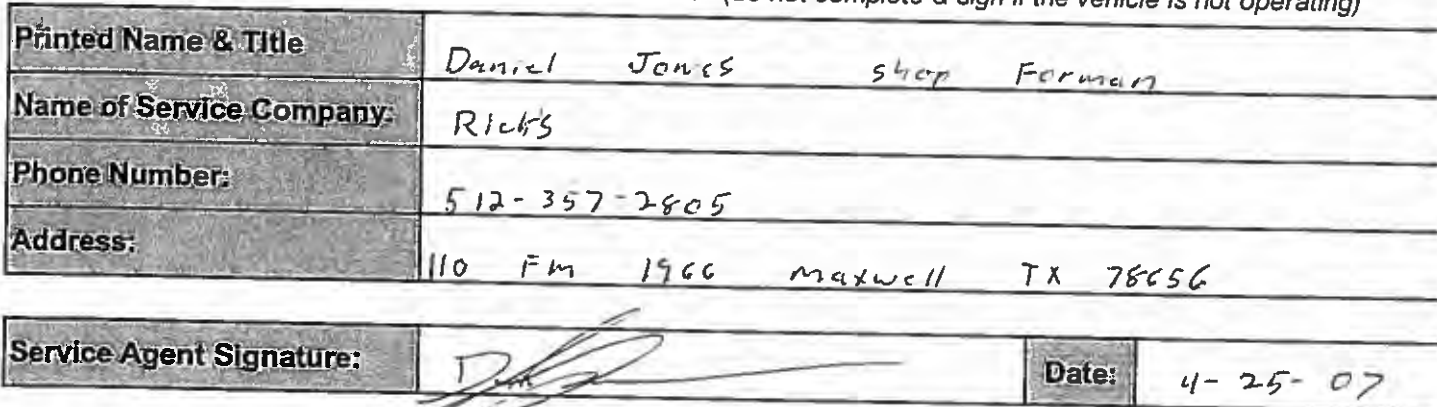 (Do not complete & sign if the vehicle is not operating)
Printed Name & Title Daniel Jones shop Forman
Name of Service Company: Rick's
Phone Number: 512-357-2805
Address: 110 Fm 1966 maxwell TX 78656
Service Agent Signature: Date: 4-25-07